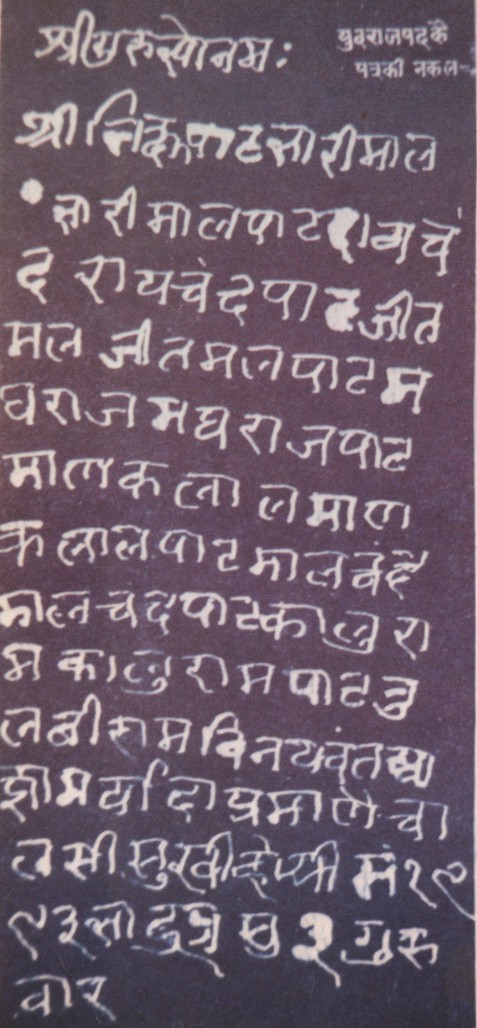 श्री गुरुभ्यो नमः
युवराजपदके
पत्रकी नकल-
श्री भिक्षु पाट भारीमाल
भारीमाल पाट रायचं
द रायचंद पाट जीत
मल जीतमल पाट म
घराज मघराज पाट
माणकलाल माण
कलाल पाट डालचंद
डालचंद पाट कालुरा
म कालुराम पाट तु
लछीराम विनयवंत आ
ज्ञा मर्यादा प्रमाणे चा
लसी सुखी होसी सं १९
९३ भाद्रव सु ३ गुरु
वार